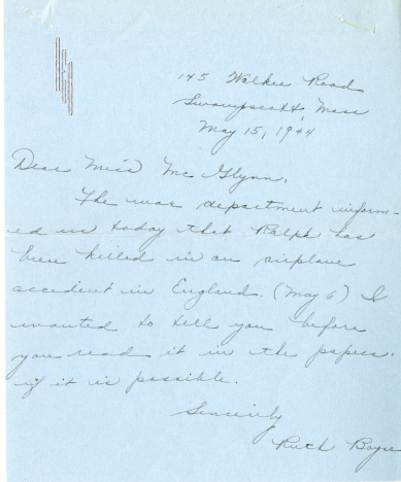 145 Walker Road
Swampscott, Mass
May 15, 1944
Dear Miss Mc Glynn,
The war department inform-
ed us today that Ralph has
been killed in an airplane
accident in England. (May 6) I
wanted to tell you before
you read it in the papers.
if it is possible.
Sincerely
Ruth Boyce